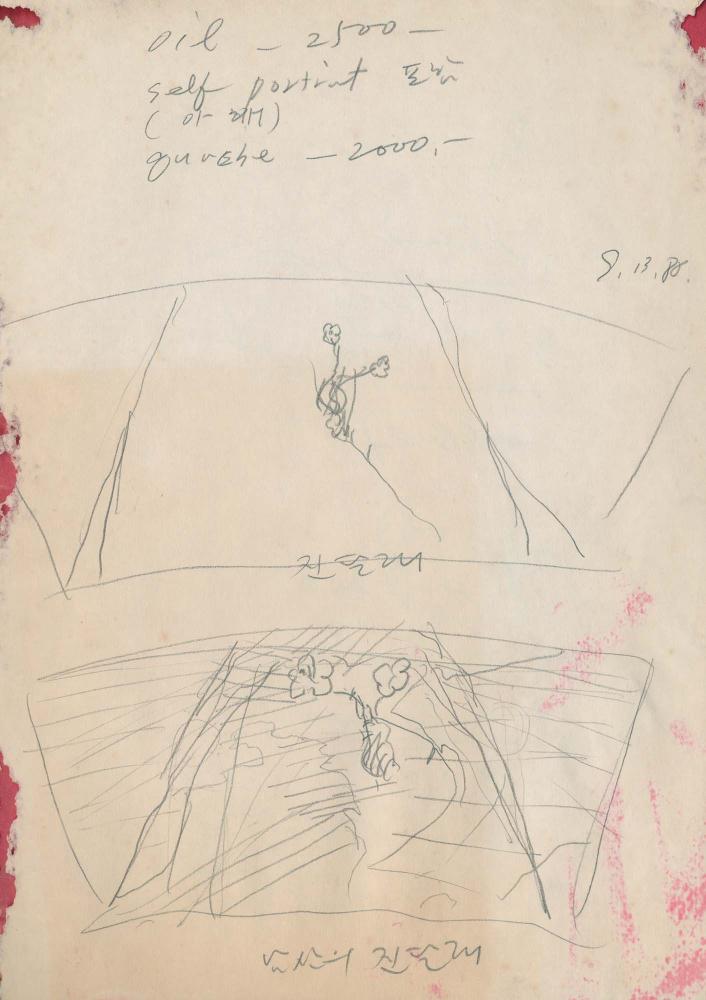 oil - 2500 -
self portrait 포함
(아래)
guvashe - 2000.-
8. 13. 85.
진달래
남산의 진달래